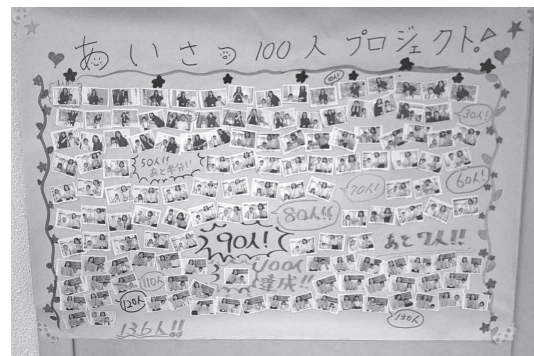 あいさつ100人プロジェクト!
10人!
30人!
50人!!
あと半分!!
60人!
70人!
80人!!
90人!
あと7人!!
100人
達成!!
110人
120人
130人
136人!!